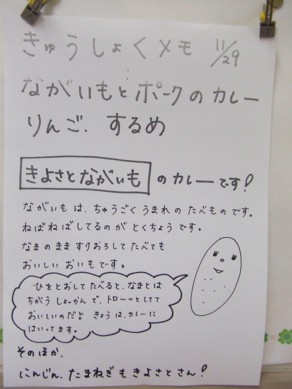 きゅうしょくメモ 11/29
ながいもとポークのカレー
りんご、するめ
きよさとながいも のカレーです!
ながいもは、ちゅうごくうまれのたべものです。
ねばねばしてるのがとくちょうです。
なまのまますりおろしてたべても
おいしいおいもです。
ひをとおしてたべると、なまとは
ちがうしょっかんで、トローっとしてて
おいしいのだ♪ きょうは、カレーに
はいってます。
そのほか、
にんじん、たまねぎもきよさとさん!